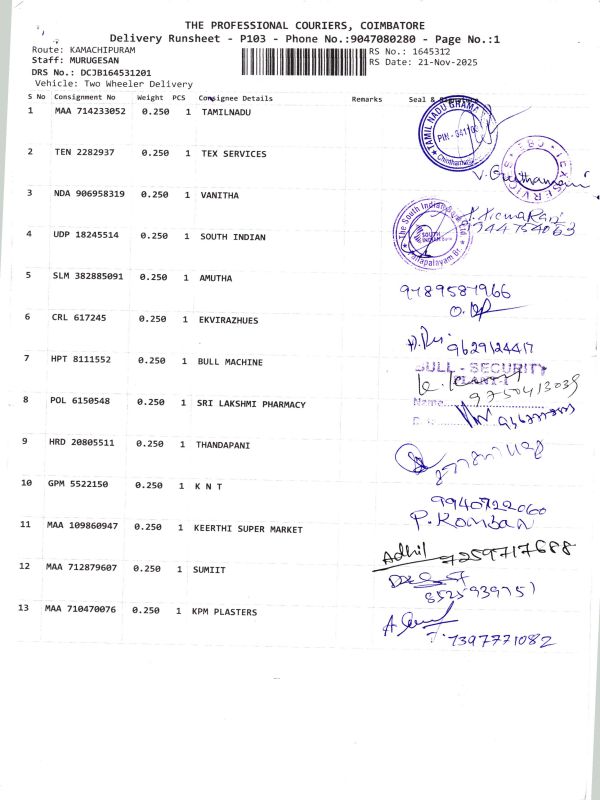 THE PROFESSIONAL COURIERS, COIMBATORE
Delivery Runsheet - P103 - Phone No.:9047080280 - Page No.:1
Route: KAMACHIPURAM RS No.: 1645312
Staff: MURUGESAN RS Date: 21-Nov-2025
DRS No.: DCJB164531201
Vehicle: Two Wheeler Delivery
S No Consignment No Weight PCS Consignee Details Remarks Seal &
1 MAA 714233052 0.250 1 TAMILNADU
TAMIL NADU GRAMA
2 TEN 2282937 0.250 1 TEX SERVICES
3 NDA 906958319 0.250 1 VANITHA
The South Indian
4 UDP 18245514 0.250 1 SOUTH INDIAN
SOUTH INDIAN
5 SLM 382885091 0.250 1 AMUTHA
9789587966
6 CRL 617245 0.250 1 EKVIRAZHUES
9629124417
7 HPT 8111552 0.250 1 BULL MACHINE
BULL - SECURITY
PLANT-I
9750413039
8 POL 6150548 0.250 1 SRI LAKSHMI PHARMACY
Name
9 HRD 20805511 0.250 1 THANDAPANI
10 GPM 5522150 0.250 1 K N T
9940722060
11 MAA 109860947 0.250 1 KEERTHI SUPER MARKET
Adhil 7259717688
12 MAA 712879607 0.250 1 SUMIIT
8525939751
13 MAA 710470076 0.250 1 KPM PLASTERS
7397771082